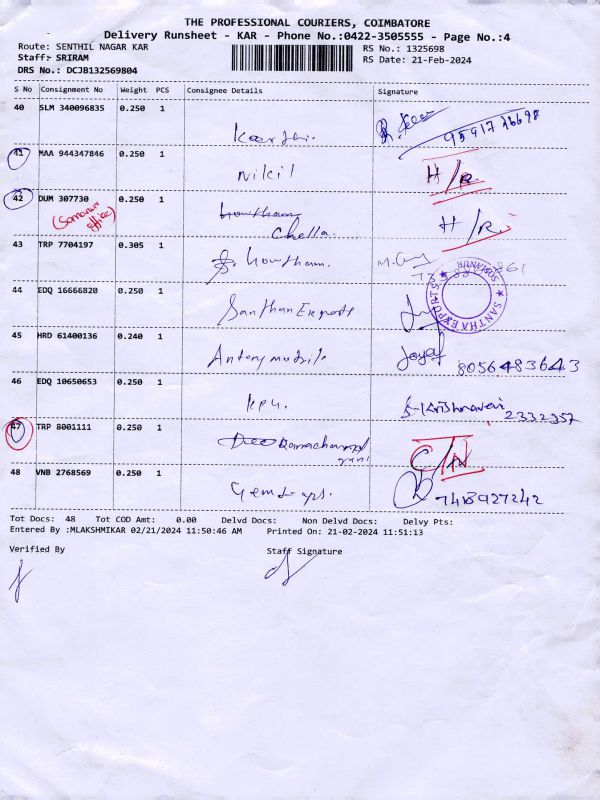 THE PROFESSIONAL COURIERS, COIMBATORE
Delivery Runsheet - KAR - Phone No.:0422-3505555 - Page No.:4
Route: SENTHIL NAGAR KAR RS No.: 1325698
Staff: SRIRAM RS Date: 21-Feb-2024
DRS No.: DCJB132569804
S No Consignment No Weight PCS Consignee Details Signature
40 SLM 340096835 0.250 1
41 MAA 944347846 0.250 1 Nikil H/R.
42 DUM 307730 0.250 1 Chella. H/R.
(Samanur office)
43 TRP 7704197 0.305 1 Gowtham.
44 EDQ 16666820 0.250 1 Santhan Exports
★ SANTHA EXPORTS ★ SOMANUR
45 HRD 61400136 0.240 1 Antony mobile Joyal 8056483643
46 EDQ 10650653 0.250 1 kpu. 2332357
47 TRP 8001111 0.250 1 C/N
48 VNB 2768569 0.250 1 7418927242
Tot Docs: 48 Tot COD Amt: 0.00 Delvd Docs: Non Delvd Docs: Delvy Pts:
Entered By :MLAKSHMIKAR 02/21/2024 11:50:46 AM Printed On: 21-02-2024 11:51:13
Verified By Staff Signature